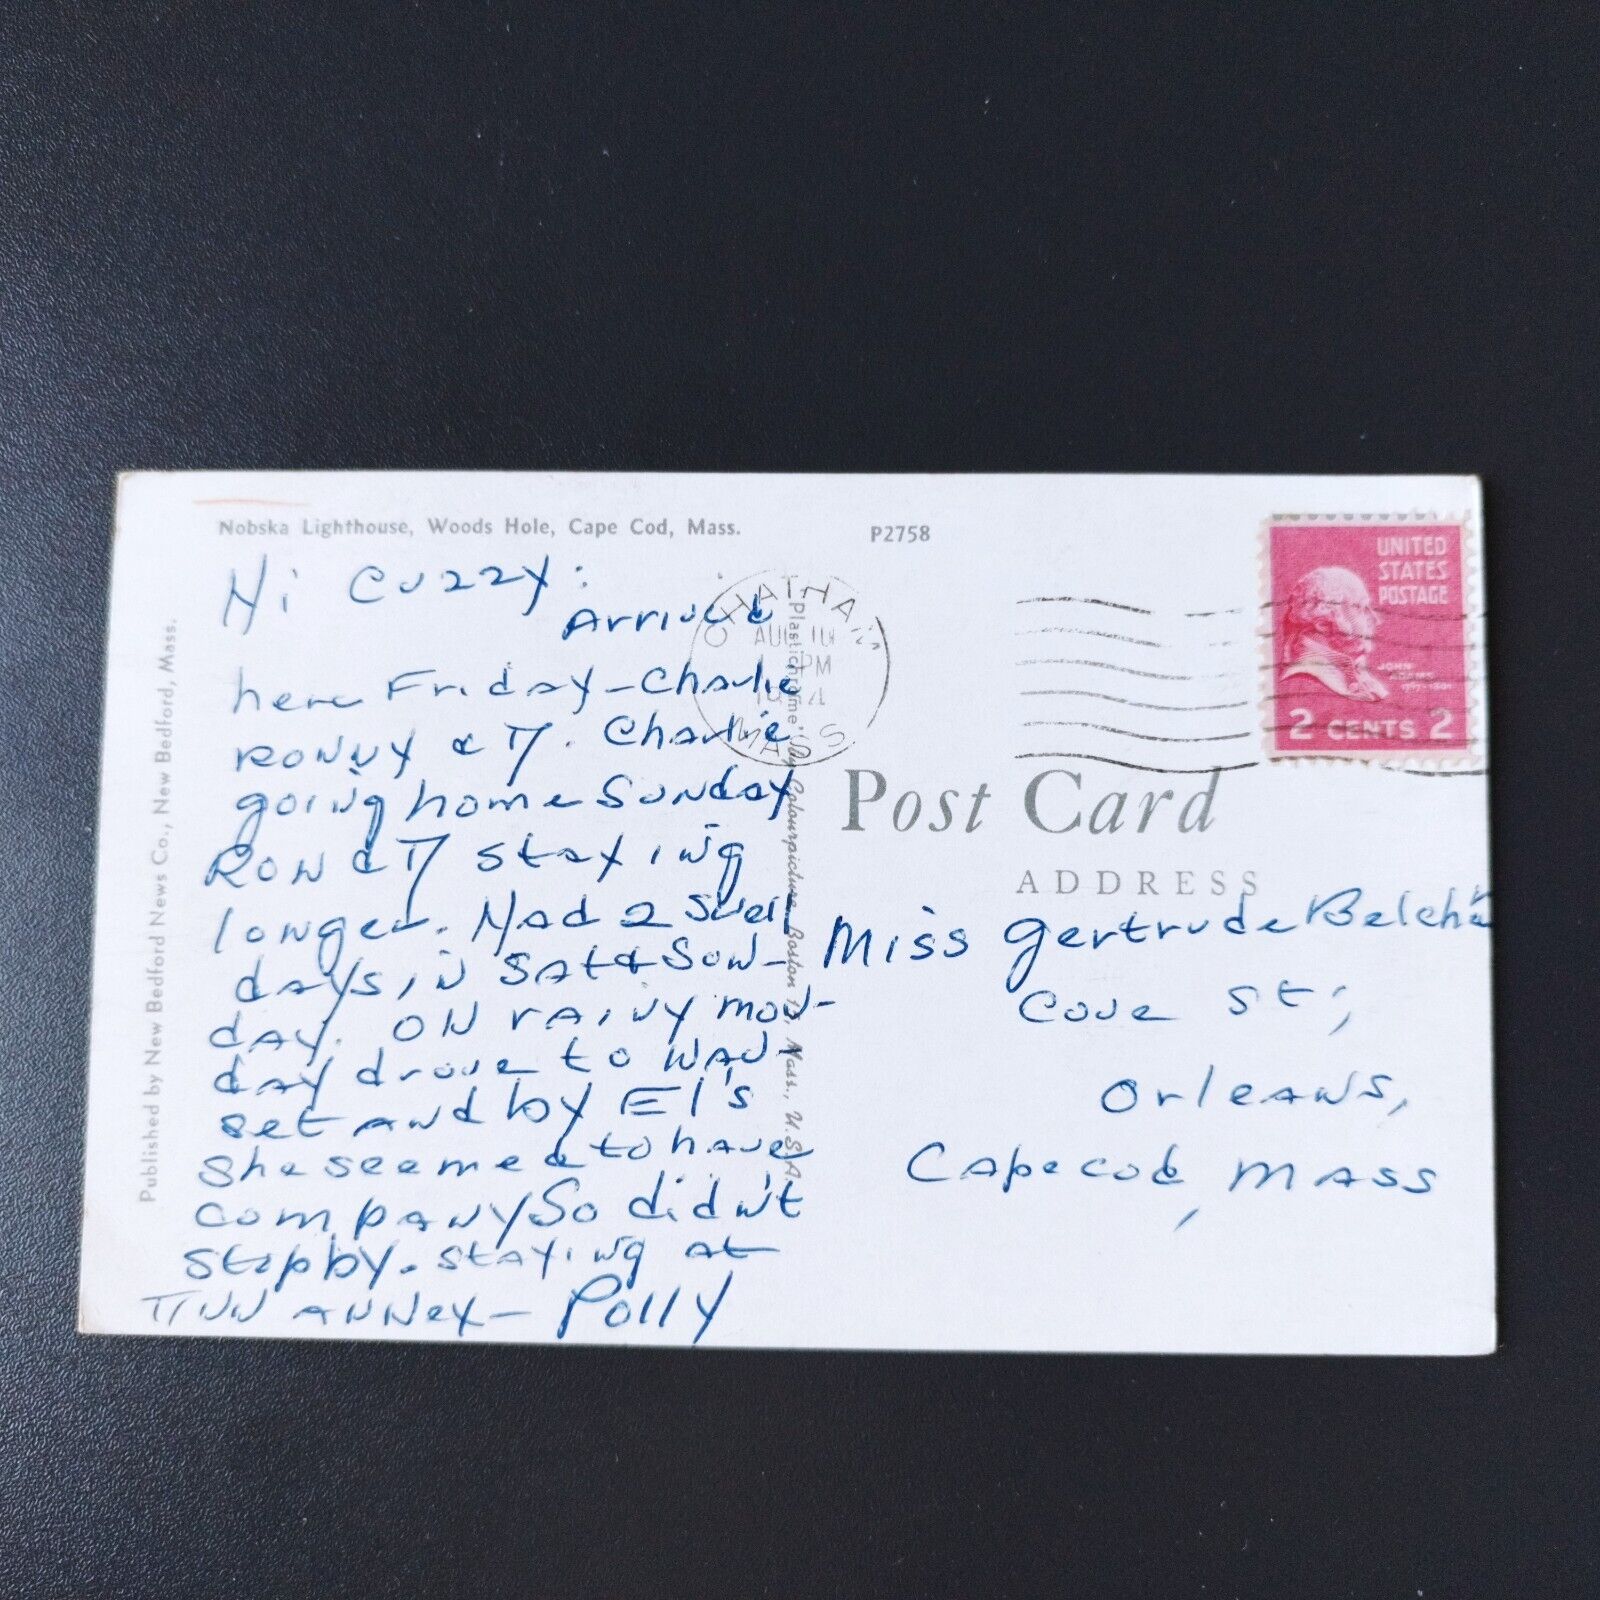 Nobska Lighthouse, Woods Hole, Cape Cod, Mass.
P2758
Hi Cuzzy:
Arrived
here Friday - Charlie
Ronny & M. Charlie
going home Sunday
Ron & M staying
longer. Had 2 swell
days in Sat & Sun-
day. On rainy Mon-
day drove to Wau-
set and by El's
She seemed to have
company So didn't
stop by. Staying at
Inn Annex - Polly
Published by New Bedford News Co., New Bedford, Mass.
"Plastichrome" by Colourpicture, Boston Mass., U.S.A.
CHATHAM
AUG 10
PM
MASS
UNITED
STATES
POSTAGE
JOHN
ADAMS
1797-1801
2 CENTS 2
Post Card
ADDRESS
Miss Gertrude
Cove St;
Orleans,
Cape Cod, Mass